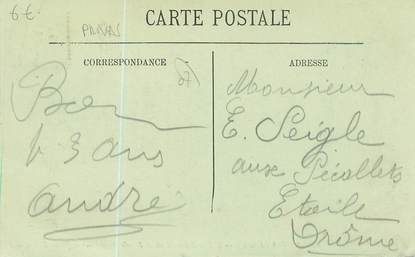 6€
PRIVAS
CARTE POSTALE
CORRESPONDANCE
07
Bon
3 ans
andré
ADRESSE
Monsieur
E. Seigle
aux Pécollets
Etoile
Drôme